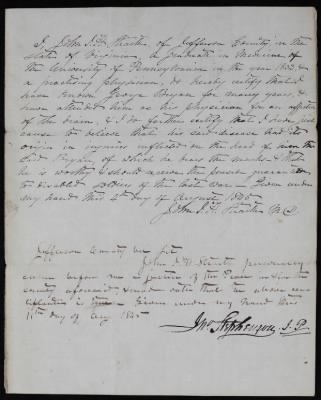 I, John J. H. Straith of Jefferson County in the
State of Virginia, a graduate in Medicine of
the University of Pennsylvania in the year &
a practising physician, do hereby certify that I
have known George Bryan for many years, &
have attended him as his physician for an affection
of the brain, & I do further certify that I have just
cause to believe that his said disease had its
origin in injuries inflicted on the head of him the
said Bryan, of which he bears the marks & that
he is worthy & should receive the pension guaranteed
to disabled soldiers of the last war — Given under
my hand this day of August 1845
John J. H. Straith M.D.
Jefferson County to wit
John J. H. Straith personally
came before me a justice of the Peace in & for the
county aforesaid & made oath that the above
certificate is true Given under my hand this
11th day of Aug 1845
Jno Stephenson J.P.